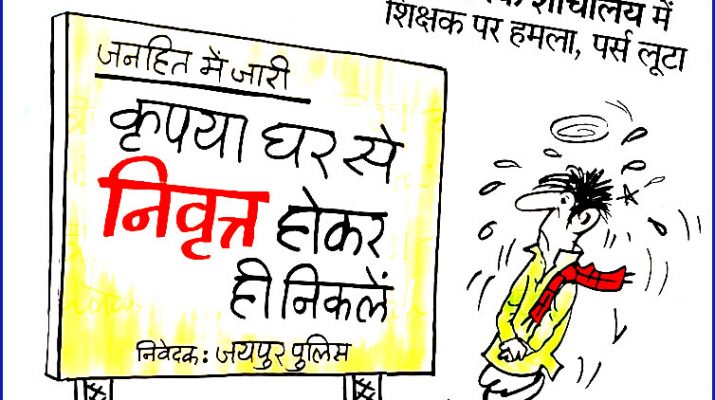 शौचालय में
शिक्षक पर हमला, पर्स लूटा
जनहित में जारी
कृपया घर से
निवृत्त होकर
ही निकलें
निवेदक: जयपुर पुलिस